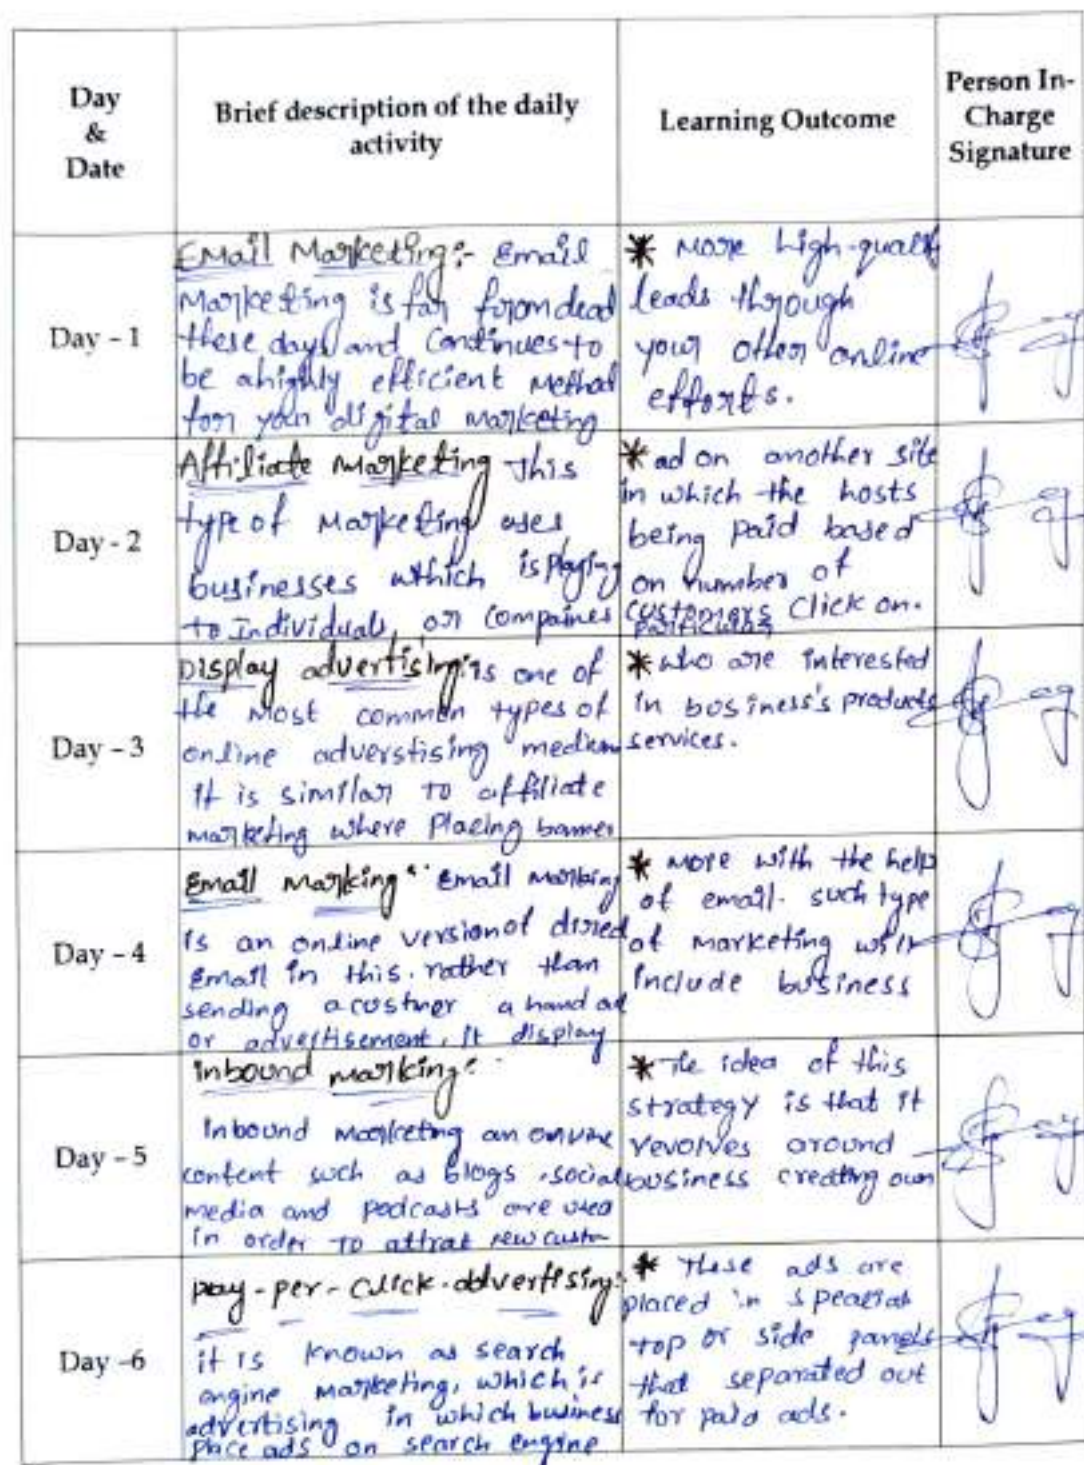 Day
&
Date
Brief description of the daily
activity
Learning Outcome
Person In-
Charge
Signature
Day - 1
Email Marketing:- Email
Marketing is far from dead
these days and continues to
be a highly efficient method
for your digital marketing
* More high-quality
leads through
your other online
efforts.
Day - 2
Affiliate marketing This
type of Marketing uses
businesses which is playing
to Individuals, or compaines
* ad on another site
in which the hosts
being paid based
on number of
customers click on.
Day - 3
Display advertising: is one of
the most common types of
online adverstising medium
it is similar to affiliate
marketing where placing banner
* who are interested
in business's products
services.
Day - 4
Email marking: Email marking
is an online version of direct
Email in this. rather than
sending a custmer a hand
or advertisement, it display
* more with the help
of email. such type
of marketing will
include business
Day - 5
inbound marking:
inbound marketing an online
content such as blogs, social
media and podcasts are used
in order to attrat new custm
* The idea of this
strategy is that it
revolves around
business creating own
Day -6
pay-per-click-advertising:
it is known as search
engine marketing, which is
advertising in which business
place ads on search engine
* These ads are
placed in special
top or side panels
that separated out
for paid ads.